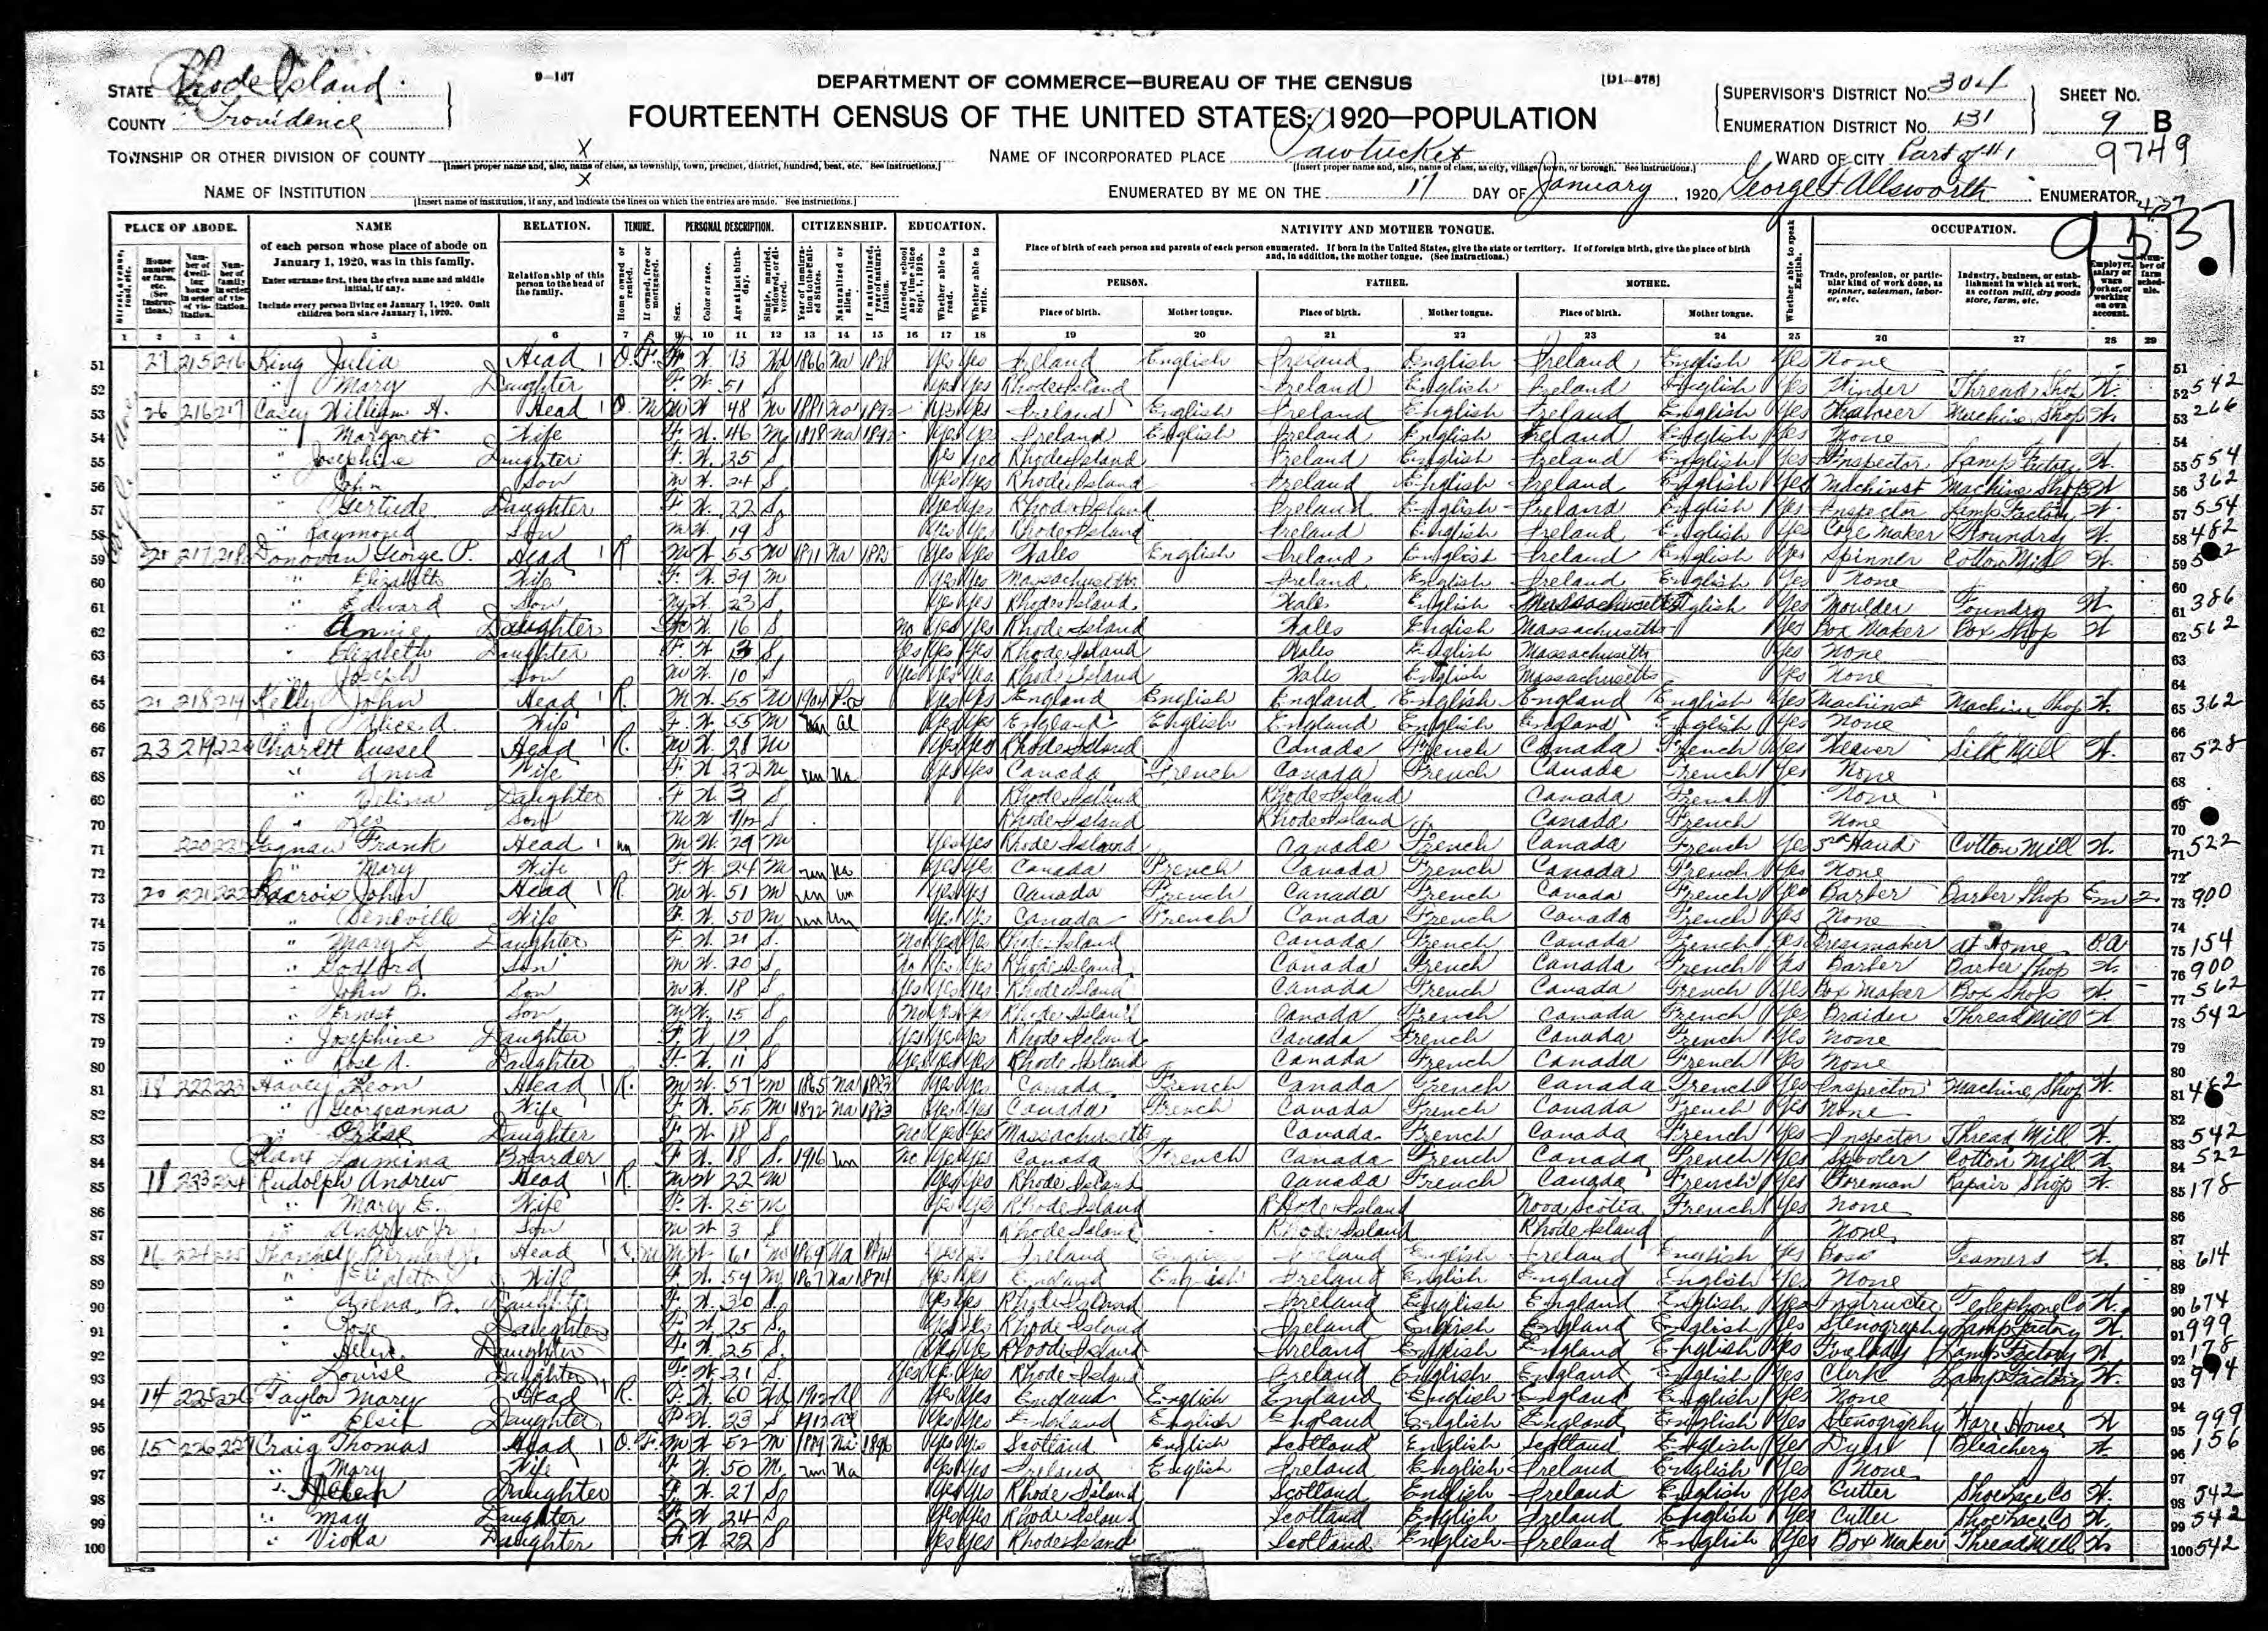 9-167
[D1-578]
STATE Rhode Island
COUNTY Providence
DEPARTMENT OF COMMERCE—BUREAU OF THE CENSUS
FOURTEENTH CENSUS OF THE UNITED STATES: 1920—POPULATION
SUPERVISOR'S DISTRICT No. 304 SHEET No.
ENUMERATION DISTRICT No. 131 9 B
9749
TOWNSHIP OR OTHER DIVISION OF COUNTY X NAME OF INCORPORATED PLACE Pawtucket WARD OF CITY Part of #1
[Insert proper name and, also, name of class, as township, town, precinct, district, hundred, beat, etc. See instructions.] [Insert proper name and, also, name of class, as city, village, town, or borough. See instructions.]
NAME OF INSTITUTION X ENUMERATED BY ME ON THE 17 DAY OF January, 1920 George F. Allsworth ENUMERATOR
[Insert name of institution, if any, and indicate the lines on which the entries are made. See instructions.]
PLACE OF ABODE. NAME RELATION. TENURE. PERSONAL DESCRIPTION. CITIZENSHIP. EDUCATION. NATIVITY AND MOTHER TONGUE. OCCUPATION.
of each person whose place of abode on January 1, 1920, was in this family.
Enter surname first, then the given name and middle initial, if any.
Include every person living on January 1, 1920. Omit children born since January 1, 1920.
Relationship of this person to the head of the family.
Place of birth of each person and parents of each person enumerated. If born in the United States, give the state or territory. If of foreign birth, give the place of birth and, in addition, the mother tongue. (See instructions.)
PERSON. FATHER. MOTHER.
Place of birth. Mother tongue. Place of birth. Mother tongue. Place of birth. Mother tongue.
Whether able to speak English.
Trade, profession, or particular kind of work done, as spinner, salesman, laborer, etc.
Industry, business, or establishment in which at work, as cotton mill, dry goods store, farm, etc.
Employer, salary or wage worker, or working on own account.
1 2 3 4 5 6 7 8 9 10 11 12 13 14 15 16 17 18 19 20 21 22 23 24 25 26 27 28 29
51 27 215 216 King Julia Head 1 O F F W 73 Wd 1866 Na 1878 Yes Yes Ireland English Ireland English Ireland English Yes None 51
52 " Mary Daughter F W 51 S Yes Yes Rhode Island Ireland English Ireland English Yes Winder Thread Shop W 52 542
53 26 216 217 Casey William H. Head 1 O M M W 48 M 1881 Na 1892 Yes Yes Ireland English Ireland English Ireland English Yes Machine Shop W 53 266
54 " Margaret Wife F W 46 M 1878 Na 1892 Yes Yes Ireland English Ireland English Ireland English Yes None 54
55 " Josephine Daughter F W 25 S Yes Yes Rhode Island Ireland English Ireland English Yes Inspector Lamp Factory W 55 554
56 " John Son M W 24 S Yes Yes Rhode Island Ireland English Ireland English Yes Machinist Machine Shop W 56 362
57 " Gertrude Daughter F W 22 S Yes Yes Rhode Island Ireland English Ireland English Yes Inspector Lamp Factory W 57 554
58 " Raymond Son M W 19 S Yes Yes Rhode Island Ireland English Ireland English Yes Core Maker Foundry W 58 482
59 21 217 218 Donovan George P. Head 1 R M W 55 M 1871 Na Yes Yes Wales English Ireland English Ireland English Yes Spinner Cotton Mill W 59
60 " Elizabeth Wife F W 39 M Yes Yes Massachusetts Ireland English Ireland English Yes None 60
61 " Edward Son M W 23 S Yes Yes Rhode Island Wales English Massachusetts English Yes Moulder Foundry W 61 386
62 " Annie Daughter F W 16 S No Yes Yes Rhode Island Wales English Massachusetts Yes Box Maker Box Shop W 62 562
63 " Elizabeth Daughter F W 13 S Yes Yes Yes Rhode Island Wales English Massachusetts Yes None 63
64 " Joseph Son M W 10 S Yes Yes Yes Rhode Island Wales English Massachusetts Yes None 64
65 21 218 219 Kelly John Head 1 R M W 55 M 1904 Pa Yes Yes England English England English England English Yes Machinist Machine Shop W 65 362
66 " Alice A. Wife F W 55 M Un Al Yes Yes England English England English England English Yes None 66
67 23 219 220 Charett Russel Head 1 R M W 28 M Yes Yes Rhode Island Canada French Canada French Yes Weaver Silk Mill W 67 528
68 " Anna Wife F W 22 M Un Na Yes Yes Canada French Canada French Canada French Yes None 68
69 " Velina Daughter F W 3 S Rhode Island Rhode Island Canada French None 69
70 " Leo Son M W S Rhode Island Rhode Island Canada French None 70
71 220 221 Gagnau Frank Head 1 Un M W 29 M Yes Yes Rhode Island Canada French Canada French Yes 3rd Hand Cotton Mill W 71 522
72 " Mary Wife F W 24 M Un Na Yes Yes Canada French Canada French Canada French Yes None 72
73 20 221 222 Lacroix John Head 1 R M W 51 M Un Un Yes Yes Canada French Canada French Canada French Yes Barber Barber Shop Em 73 900
74 " Wife F W 50 M Un Un Yes Yes Canada French Canada French Canada French Yes None 74
75 " Mary L Daughter F W 21 S No Yes Yes Rhode Island Canada French Canada French Yes Dressmaker at Home O.A 75 154
76 " Godford Son M W 20 S No Yes Yes Rhode Island Canada French Canada French Yes Barber Barber Shop W 76 900
77 " John B. Son M W 18 S Yes Yes Yes Rhode Island Canada French Canada French Yes Box Maker Box Shop W 77 562
78 " Ernest Son M W 15 S No Yes Yes Rhode Island Canada French Canada French Yes Braider Thread Mill W 78 542
79 " Josephine Daughter F W 12 S Yes Yes Yes Rhode Island Canada French Canada French Yes None 79
80 " Rose A. Daughter F W 11 S Yes Yes Yes Rhode Island Canada French Canada French Yes None 80
81 18 222 223 Havey Leon Head 1 R M W 57 M 1865 Na 1883 Yes Yes Canada French Canada French Canada French Yes Inspector Machine Shop W 81
82 " Georgeanna Wife F W 55 M 1872 Na 1883 Yes Yes Canada French Canada French Canada French Yes None 82
83 " Daughter F W 18 S No Yes Yes Massachusetts Canada French Canada French Yes Inspector Thread Mill W 83 542
84 Boarder F W 18 S 1916 Un No Yes Yes Canada French Canada French Canada French Yes Spooler Cotton Mill W 84 522
85 18 223 224 Rudolph Andrew Head 1 R M W 22 M Yes Yes Rhode Island Canada French Canada French Yes Foreman Repair Shop W 85 178
86 " Mary E. Wife F W 25 M Yes Yes Rhode Island Rhode Island Nova Scotia French Yes None 86
87 " Andrew Jr Son M W 3 S Rhode Island Rhode Island Rhode Island None 87
88 16 224 225 Head 1 O M M W 61 M 1869 Na 1874 Yes Yes Ireland English Ireland English Ireland English Yes Boss Teamers W 88 614
89 " Elizabeth Wife F W 54 M 1867 Na 1874 Yes Yes England English Ireland English England English Yes None 89
90 " Anna B. Daughter F W 30 S Yes Yes Rhode Island Ireland English England English Yes Instructer Telephone Co W 90 674
91 " Rose Daughter F W 25 S Yes Yes Rhode Island Ireland English England English Yes Stenography Lamp Factory W 91 999
92 " Daughter F W 25 S Yes Yes Rhode Island Ireland English England English Yes Forelady Lamp Factory W 92 178
93 " Louise Daughter F W 21 S Yes Yes Yes Rhode Island Ireland English England English Yes Clerk Lamp Factory W 93
94 14 225 226 Taylor Mary Head 1 R F W 60 Wd 1912 Al Yes Yes England English England English England English Yes None 94
95 " Elsie Daughter F W 23 S 1912 Al Yes Yes England English England English England English Yes Stenography Ware House W 95 999
96 15 226 227 Craig Thomas Head 1 O F M W 52 M 1889 Na 1896 Yes Yes Scotland English Scotland English Scotland English Yes Dyer Bleachery W 96 156
97 " Mary Wife F W 50 M Un Na Yes Yes Ireland English Ireland English Ireland English Yes None 97
98 " Helen Daughter F W 27 S Yes Yes Rhode Island Scotland English Ireland English Yes Cutter Shoe Lace Co W 98 542
99 " May Daughter F W 24 S Yes Yes Rhode Island Scotland English Ireland English Yes Cutter Shoe Lace Co W 99 542
100 " Viola Daughter F W 22 S Yes Yes Rhode Island Scotland English Ireland English Yes Box Maker Thread Mill W 100 542